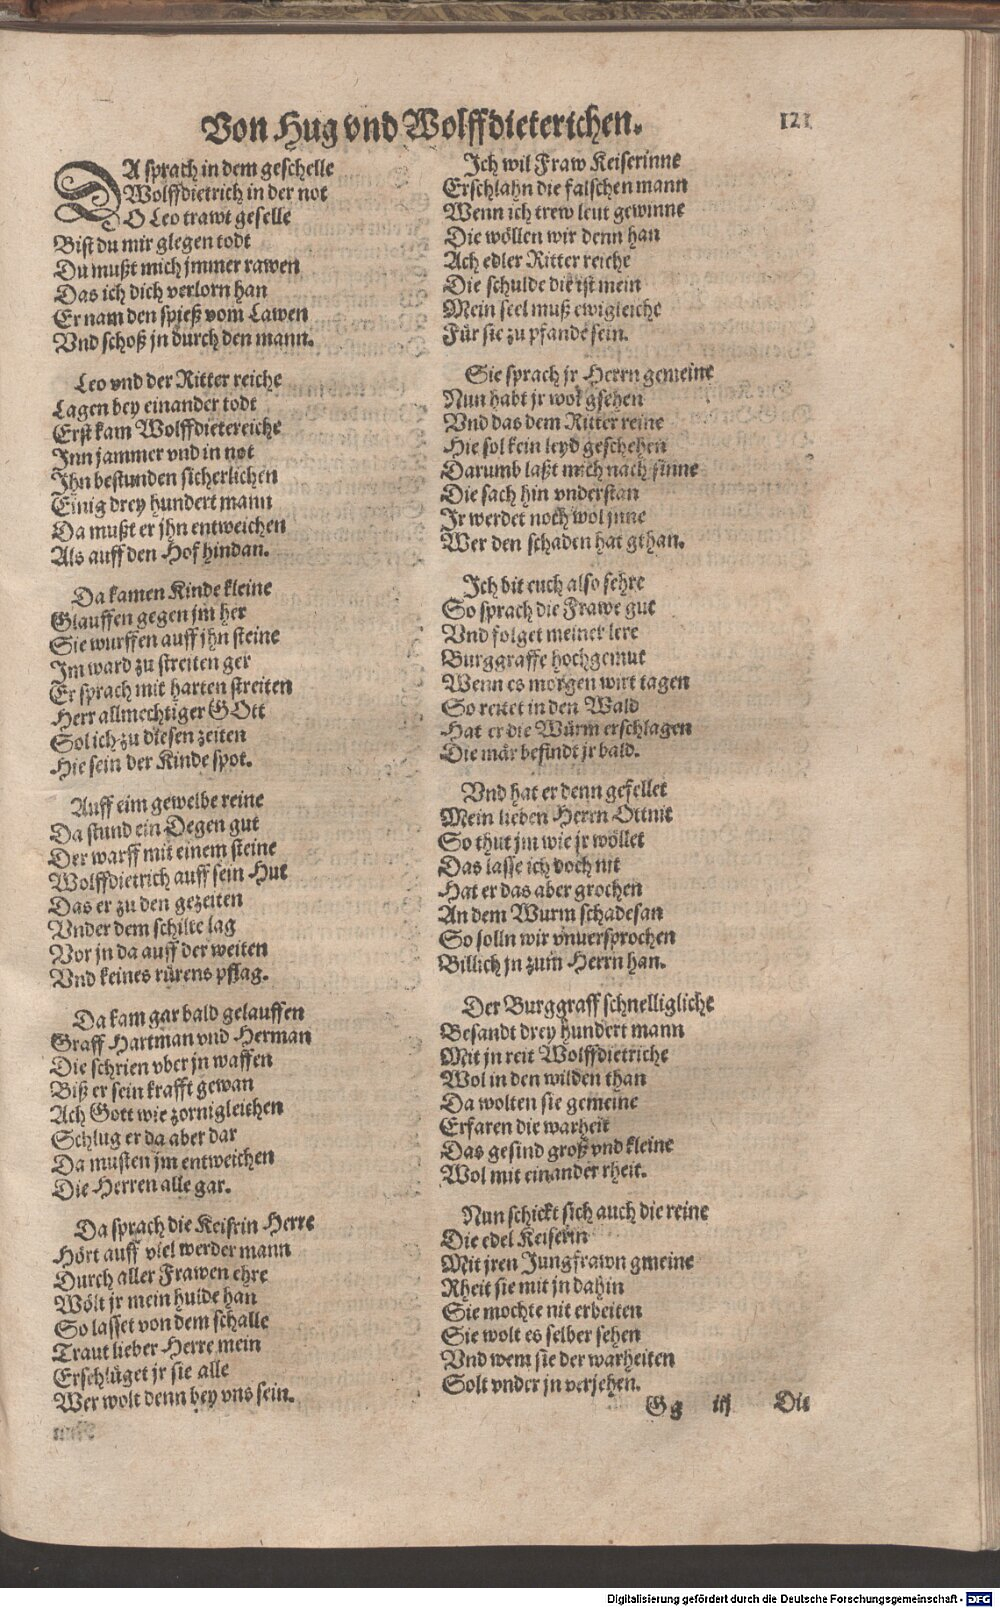 Von Hug vnd Wolffdieterichen. 121
DA sprach in dem geschelle
Wolffdietrich in der not
O Leo trawt geselle
Bist du mir glegen todt
Du mußt mich jmmer rawen
Das ich dich verlorn han
Er nam den spieß vom Lawen
Vnd schoß jn durch den mann.
Leo vnd der Ritter reiche
Lagen bey einander todt
Erst kam Wolffdietereiche
Inn jammer vnd in not
Ihn bestunden sicherlichen
Einig drey hundert mann
Da mußt er jhn entweichen
Als auff den Hof hindan.
Da kamen Kinde kleine
Glauffen gegen jm her
Sie wurffen auff jhn steine
Im ward zu streiten ger
Er sprach mit harten streiten
Herr allmechtiger GOtt
Sol ich zu diesen zeiten
Hie sein der Kinde spot.
Auff eim gewelbe reine
Da stund ein Degen gut
Der warff mit einem steine
Wolffdietrich auff sein Hut
Das er zu den gezeiten
Vnder dem schilte lag
Vor jn da auff der weiten
Vnd keines rürens pflag.
Da kam gar bald gelauffen
Graff Hartman vnd Herman
Die schrien vber jn waffen
Biß er sein krafft gewan
Ach Gott wie zornigleichen
Schlug er da aber dar
Da musten jm entweichen
Die Herren alle gar.
Da sprach die Keisrin Herre
Hört auff viel werder mann
Durch aller Frawen ehre
Wölt jr mein hulde han
So lasset von dem schalle
Traut lieber Herre mein
Erschlüget jr sie alle
Wer wolt denn bey vns sein.
Ich wil Fraw Keiserinne
Erschlahn die falschen mann
Wenn ich trew leut gewinne
Die wöllen wir denn han
Ach edler Ritter reiche
Die schulde die ist mein
Mein seel muß ewigleiche
Für sie zu pfande sein.
Sie sprach jr Herrn gemeine
Nun habt jr wol gsehen
Vnd das dem Ritter reine
Hie sol kein leyd geschehen
Darumb laßt mich nach sinne
Die sach hin vnderstan
Ir werdet noch wol jnne
Wer den schaden hat gthan.
Ich bit euch also sehre
So sprach die Frawe gut
Vnd folget meiner lere
Burggraffe hochgemut
Wenn es morgen wirt tagen
So reitet in den Wald
Hat er die Würm erschlagen
Die mär befindt jr bald.
Vnd hat er denn gefellet
Mein lieben Herrn Ottnit
So thut jm wie jr wöllet
Das lasse ich doch nit
Hat er das aber grochen
An dem Wurm schadesan
So solln wir vnuersprochen
Billich jn zum Herrn han.
Der Burggraff schnelligliche
Besandt drey hundert mann
Mit jn reit Wolffdietriche
Wol in den wilden than
Da wolten sie gemeine
Erfaren die warheit
Das gesind groß vnd kleine
Wol mit einander rheit.
Nun schickt sich auch die reine
Die edel Keiserin
Mit jren Jungfrawn gmeine
Rheit sie mit jn dahin
Sie mochte nit erbeiten
Sie wolt es selber sehen
Vnd wem sie der warheiten
Solt vnder jn verjehen.
Gg iij Die
Digitalisierung gefördert durch die Deutsche Forschungsgemeinschaft - DFG